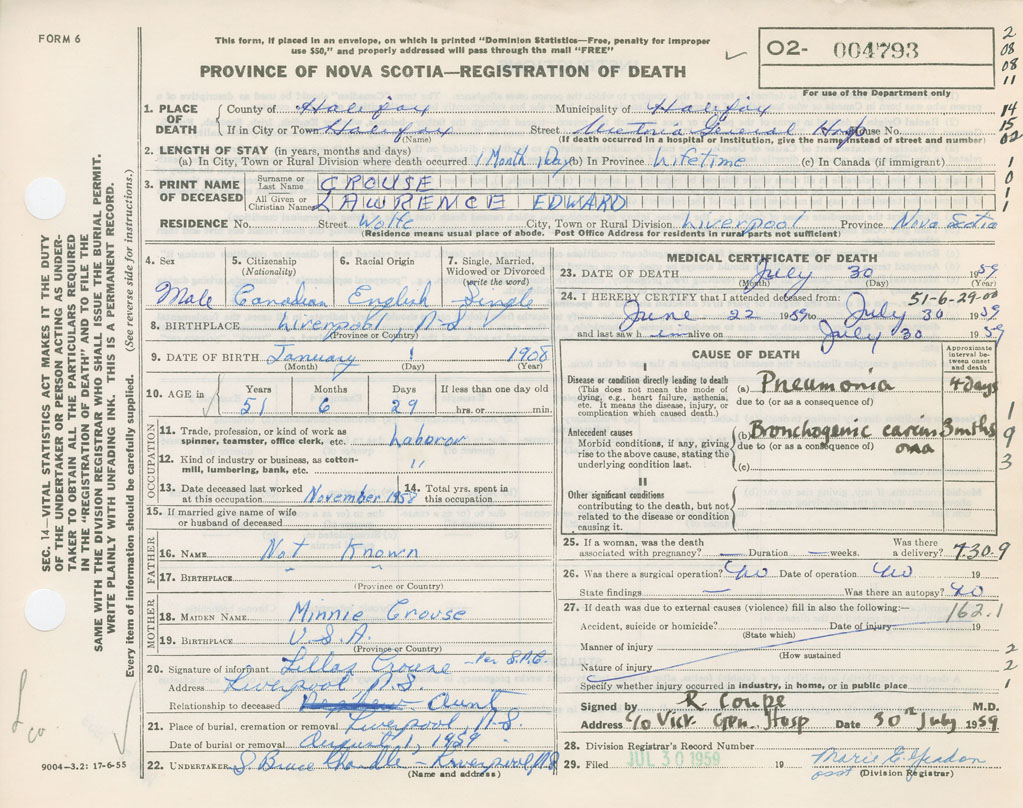 FORM 6
This form, if placed in an envelope, on which is printed "Dominion Statistics—Free, penalty for improper
use $50," and properly addressed will pass through the mail "FREE"
PROVINCE OF NOVA SCOTIA—REGISTRATION OF DEATH
O2- 004793
For use of the Department only
2
08
08
11
14
15
02
1
0
1
1
1. PLACE OF DEATH
County of Halifax Municipality of Halifax
If in City or Town Halifax Street Victoria General Hosp House No.
(Name) (If death occurred in a hospital or institution, give the name instead of street and number)
2. LENGTH OF STAY (in years, months and days)
(a) In City, Town or Rural Division where death occurred 1 Month 1 Day (b) In Province Lifetime (c) In Canada (if immigrant)
3. PRINT NAME OF DECEASED
Surname or Last Name CROUSE
All Given or Christian Names LAWRENCE EDWARD
RESIDENCE No. Street Wolfe City, Town or Rural Division Liverpool Province Nova Scotia
(Residence means usual place of abode. Post Office Address for residents in rural parts not sufficient)
SEC. 14—VITAL STATISTICS ACT MAKES IT THE DUTY
OF THE UNDERTAKER OR PERSON ACTING AS UNDER-
TAKER TO OBTAIN ALL THE PARTICULARS REQUIRED
IN THE "REGISTRATION OF DEATH" AND TO FILE THE
SAME WITH THE DIVISION REGISTRAR WHO SHALL ISSUE THE BURIAL PERMIT.
WRITE PLAINLY WITH UNFADING INK. THIS IS A PERMANENT RECORD.
Every item of information should be carefully supplied. (See reverse side for instructions.)
4. Sex 5. Citizenship (Nationality) 6. Racial Origin 7. Single, Married, Widowed or Divorced (write the word)
Male Canadian English Single
8. BIRTHPLACE Liverpool, N.S.
(Province or Country)
9. DATE OF BIRTH January 1 1908
(Month) (Day) (Year)
10. AGE Years Months Days If less than one day old
51 6 29 hrs. or min.
OCCUPATION
11. Trade, profession, or kind of work as
spinner, teamster, office clerk, etc. Laborer
12. Kind of industry or business, as cotton-
mill, lumbering, bank, etc. "
13. Date deceased last worked
at this occupation November 1958
14. Total yrs. spent in
this occupation
15. If married give name of wife
or husband of deceased
FATHER
16. NAME Not Known
17. BIRTHPLACE " "
(Province or Country)
MOTHER
18. MAIDEN NAME Minnie Crouse
19. BIRTHPLACE U.S.A.
(Province or Country)
20. Signature of informant Lillas Crouse - Per
Address Liverpool, N.S.
Relationship to deceased Aunt
21. Place of burial, cremation or removal Liverpool, N.S.
Date of burial or removal August 1, 1959
22. UNDERTAKER S. Bruce Chandle - Liverpool, N.S.
(Name and address)
9004-3.2: 17-6-55
MEDICAL CERTIFICATE OF DEATH
23. DATE OF DEATH July 30 1959
(Month) (Day) (Year)
24. I HEREBY CERTIFY that I attended deceased from: 51-6-29-00
June 22 1959 to July 30 1959
and last saw h im alive on July 30 1959
CAUSE OF DEATH
Approximate interval between onset and death
I
Disease or condition directly leading to death
(This does not mean the mode of
dying, e.g., heart failure, asthenia,
etc. It means the disease, injury, or
complication which caused death.)
(a) Pneumonia 4 days
due to (or as a consequence of)
Antecedent causes
Morbid conditions, if any, giving
rise to the above cause, stating the
underlying condition last.
(b) Bronchogenic carcinoma 3 mths
due to (or as a consequence of)
(c)
1
9
3
II
Other significant conditions
contributing to the death, but not
related to the disease or condition
causing it.
25. If a woman, was the death
associated with pregnancy? — Duration — weeks. Was there
a delivery? 7.30.9
26. Was there a surgical operation? No Date of operation No 19
State findings — Was there an autopsy? No
27. If death was due to external causes (violence) fill in also the following:— 162.1
Accident, suicide or homicide? Date of injury 19
(State which)
Manner of injury 2
(How sustained)
Nature of injury 2
Specify whether injury occurred in industry, in home, or in public place 1
Signed by R. Coupe M.D.
Address c/o Vict. Gen. Hosp Date 30th July 1959
28. Division Registrar's Record Number
29. Filed JUL 30 1959 19 Marie E. Yeadon
(Division Registrar)